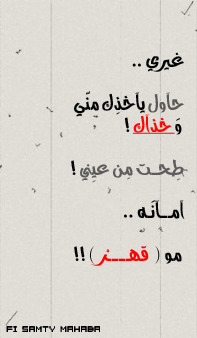 غيري ..
حاول ياخذك منّي
وَ خذاك !
طحت من عيني !
امـانَـه ..
مو ( قهـــر ) !!
FI SAMTY MAHABA